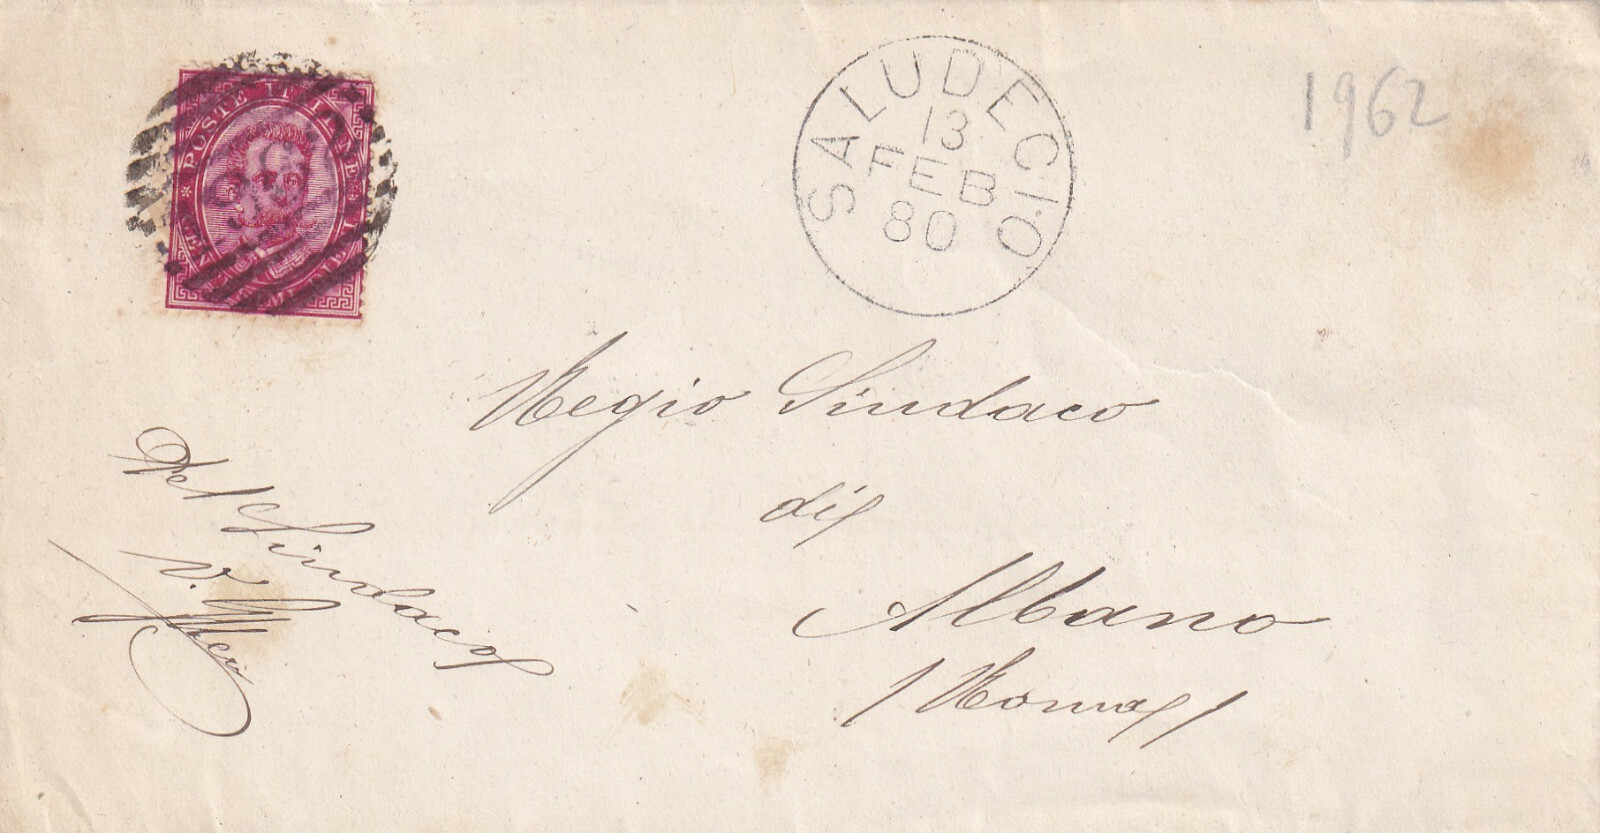 POSTE ITALIANE
SALUDECIO
13
FEB
80
1962
Regio Sindaco
di
Albano
/ Roma /
Del Sindaco
V.